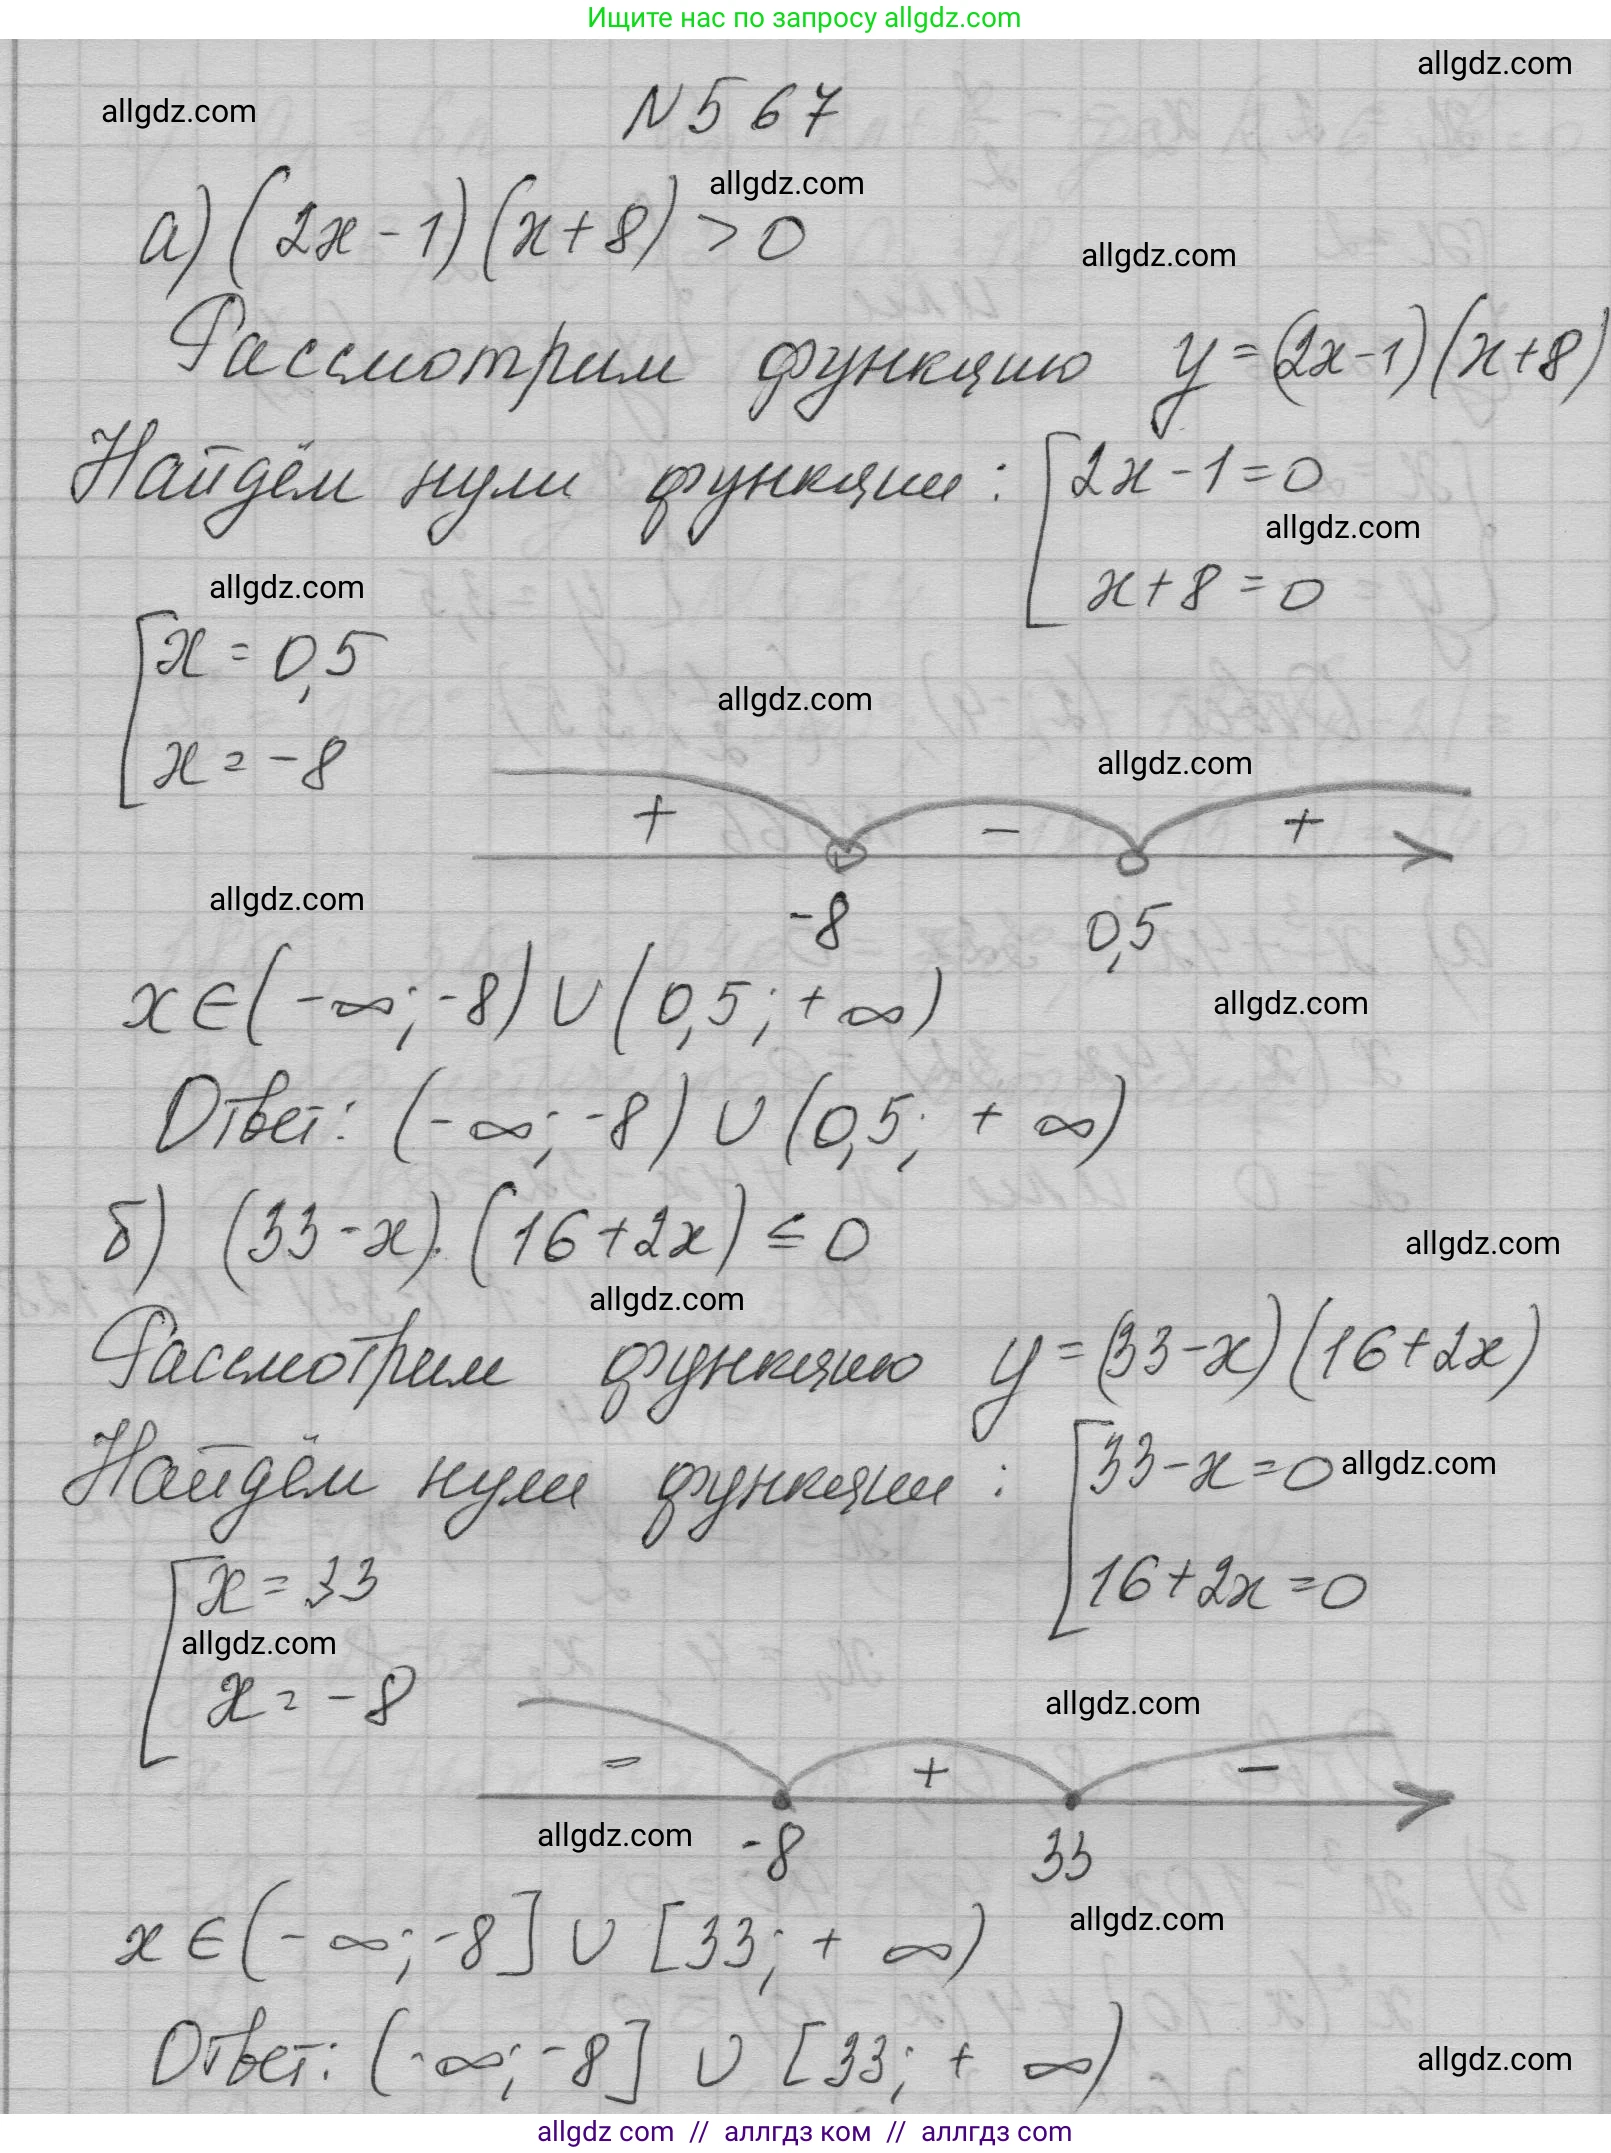 Ищите нас по запросу allgdz.com
allgdz.com
allgdz.com
N 567
allgdz.com
а) (2x-1)(x+8) > 0
allgdz.com
Рассмотрим функцию y=(2x-1)(x+8)
Найдём нули функции: [2x-1=0
allgdz.com
x+8=0
allgdz.com
[x = 0,5
allgdz.com
x = -8
allgdz.com
+ - +
-8 0,5
allgdz.com
x∈(-∞;-8)∪(0,5;+∞)
allgdz.com
Ответ: (-∞;-8)∪(0,5; +∞)
б) (33-x)·(16+2x) ≤ 0
allgdz.com
allgdz.com
Рассмотрим функцию y=(33-x)(16+2x)
Найдём нули функции: [33-x=0
allgdz.com
16+2x=0
[x = 33
allgdz.com
x = -8
allgdz.com
- + -
allgdz.com
-8 33
allgdz.com
x∈(-∞;-8]∪[33;+∞)
Ответ: (-∞;-8] ∪ [33; +∞)
allgdz.com
allgdz com // аллгдз ком // аллгдз.com